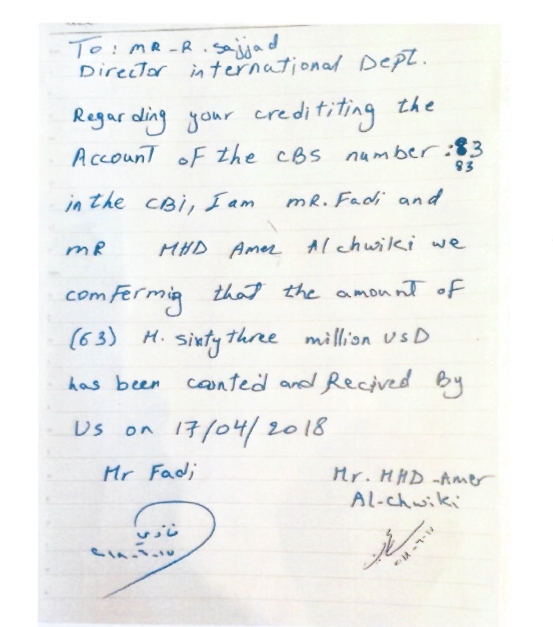 To: MR-R. sajjad
Director international Dept.
Regarding your credititing the
Account of the CBS number :83
83
in the CBi, I am mR. Fadi and
mR MHD Amer Alchwiki we
comfermig that the amount of
(63) M. sixty three million USD
has been counted and Recived By
Us on 17/04/2018
Mr Fadi
Mr. MHD-Amer
Al-chwiki